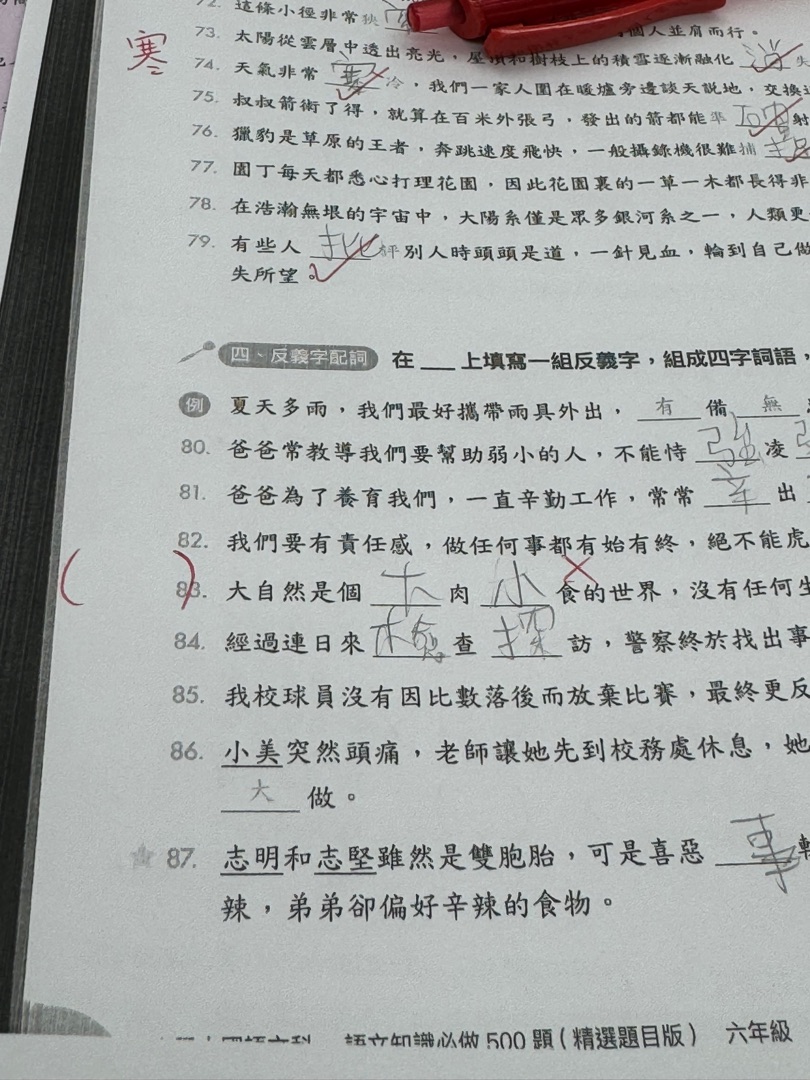 72. 這條小徑非常狹 個人並肩而行。
73. 太陽從雲層中透出亮光，屋頂和樹枝上的積雪逐漸融化 消 失
寒
74. 天氣非常 寒 冷，我們一家人圍在暖爐旁邊談天說地，交換
75. 叔叔箭術了得，就算在百米外張弓，發出的箭都能準 確 射
76. 獵豹是草原的王者，奔跳速度飛快，一般攝錄機很難捕 捉
77. 園丁每天都悉心打理花園，因此花園裏的一草一木都長得非
78. 在浩瀚無垠的宇宙中，太陽系僅是眾多銀河系之一，人類更
79. 有些人 批 評別人時頭頭是道，一針見血，輪到自己做
失所望。
四、反義字配詞 在 ___ 上填寫一組反義字，組成四字詞語，
例 夏天多雨，我們最好攜帶雨具外出， 有 備 無
80. 爸爸常教導我們要幫助弱小的人，不能恃 強 凌
81. 爸爸為了養育我們，一直辛勤工作，常常 辛 出
82. 我們要有責任感，做任何事都有始有終，絕不能虎
( ) 83. 大自然是個 大 肉 小 食的世界，沒有任何生
84. 經過連日來 檢 查 探 訪，警察終於找出事
85. 我校球員沒有因比數落後而放棄比賽，最終更反
86. 小美突然頭痛，老師讓她先到校務處休息，她
大 做。
87. 志明和志堅雖然是雙胞胎，可是喜惡
辣，弟弟卻偏好辛辣的食物。
語文知識必做 500 題（精選題目版） 六年級